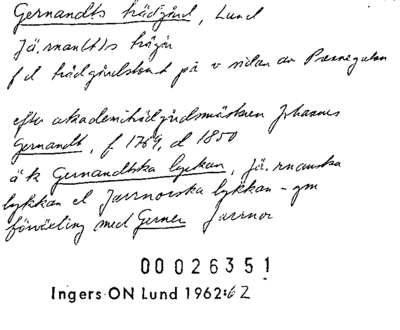 Gernandts trädgård, Lund
jä.rnan(t)s trägår
f d trädgårdstomt på v sidan av Paregatan
efter akademiträdgårdsmästaren Johannes
Gernandt, f 1769, d 1850
ä k Gernandtska lyckan, jä.rnanska
lykkan el järrnorska lykkan – gm
förväxling med Gerner järrnor
00026351
Ingers ON Lund 1962:62